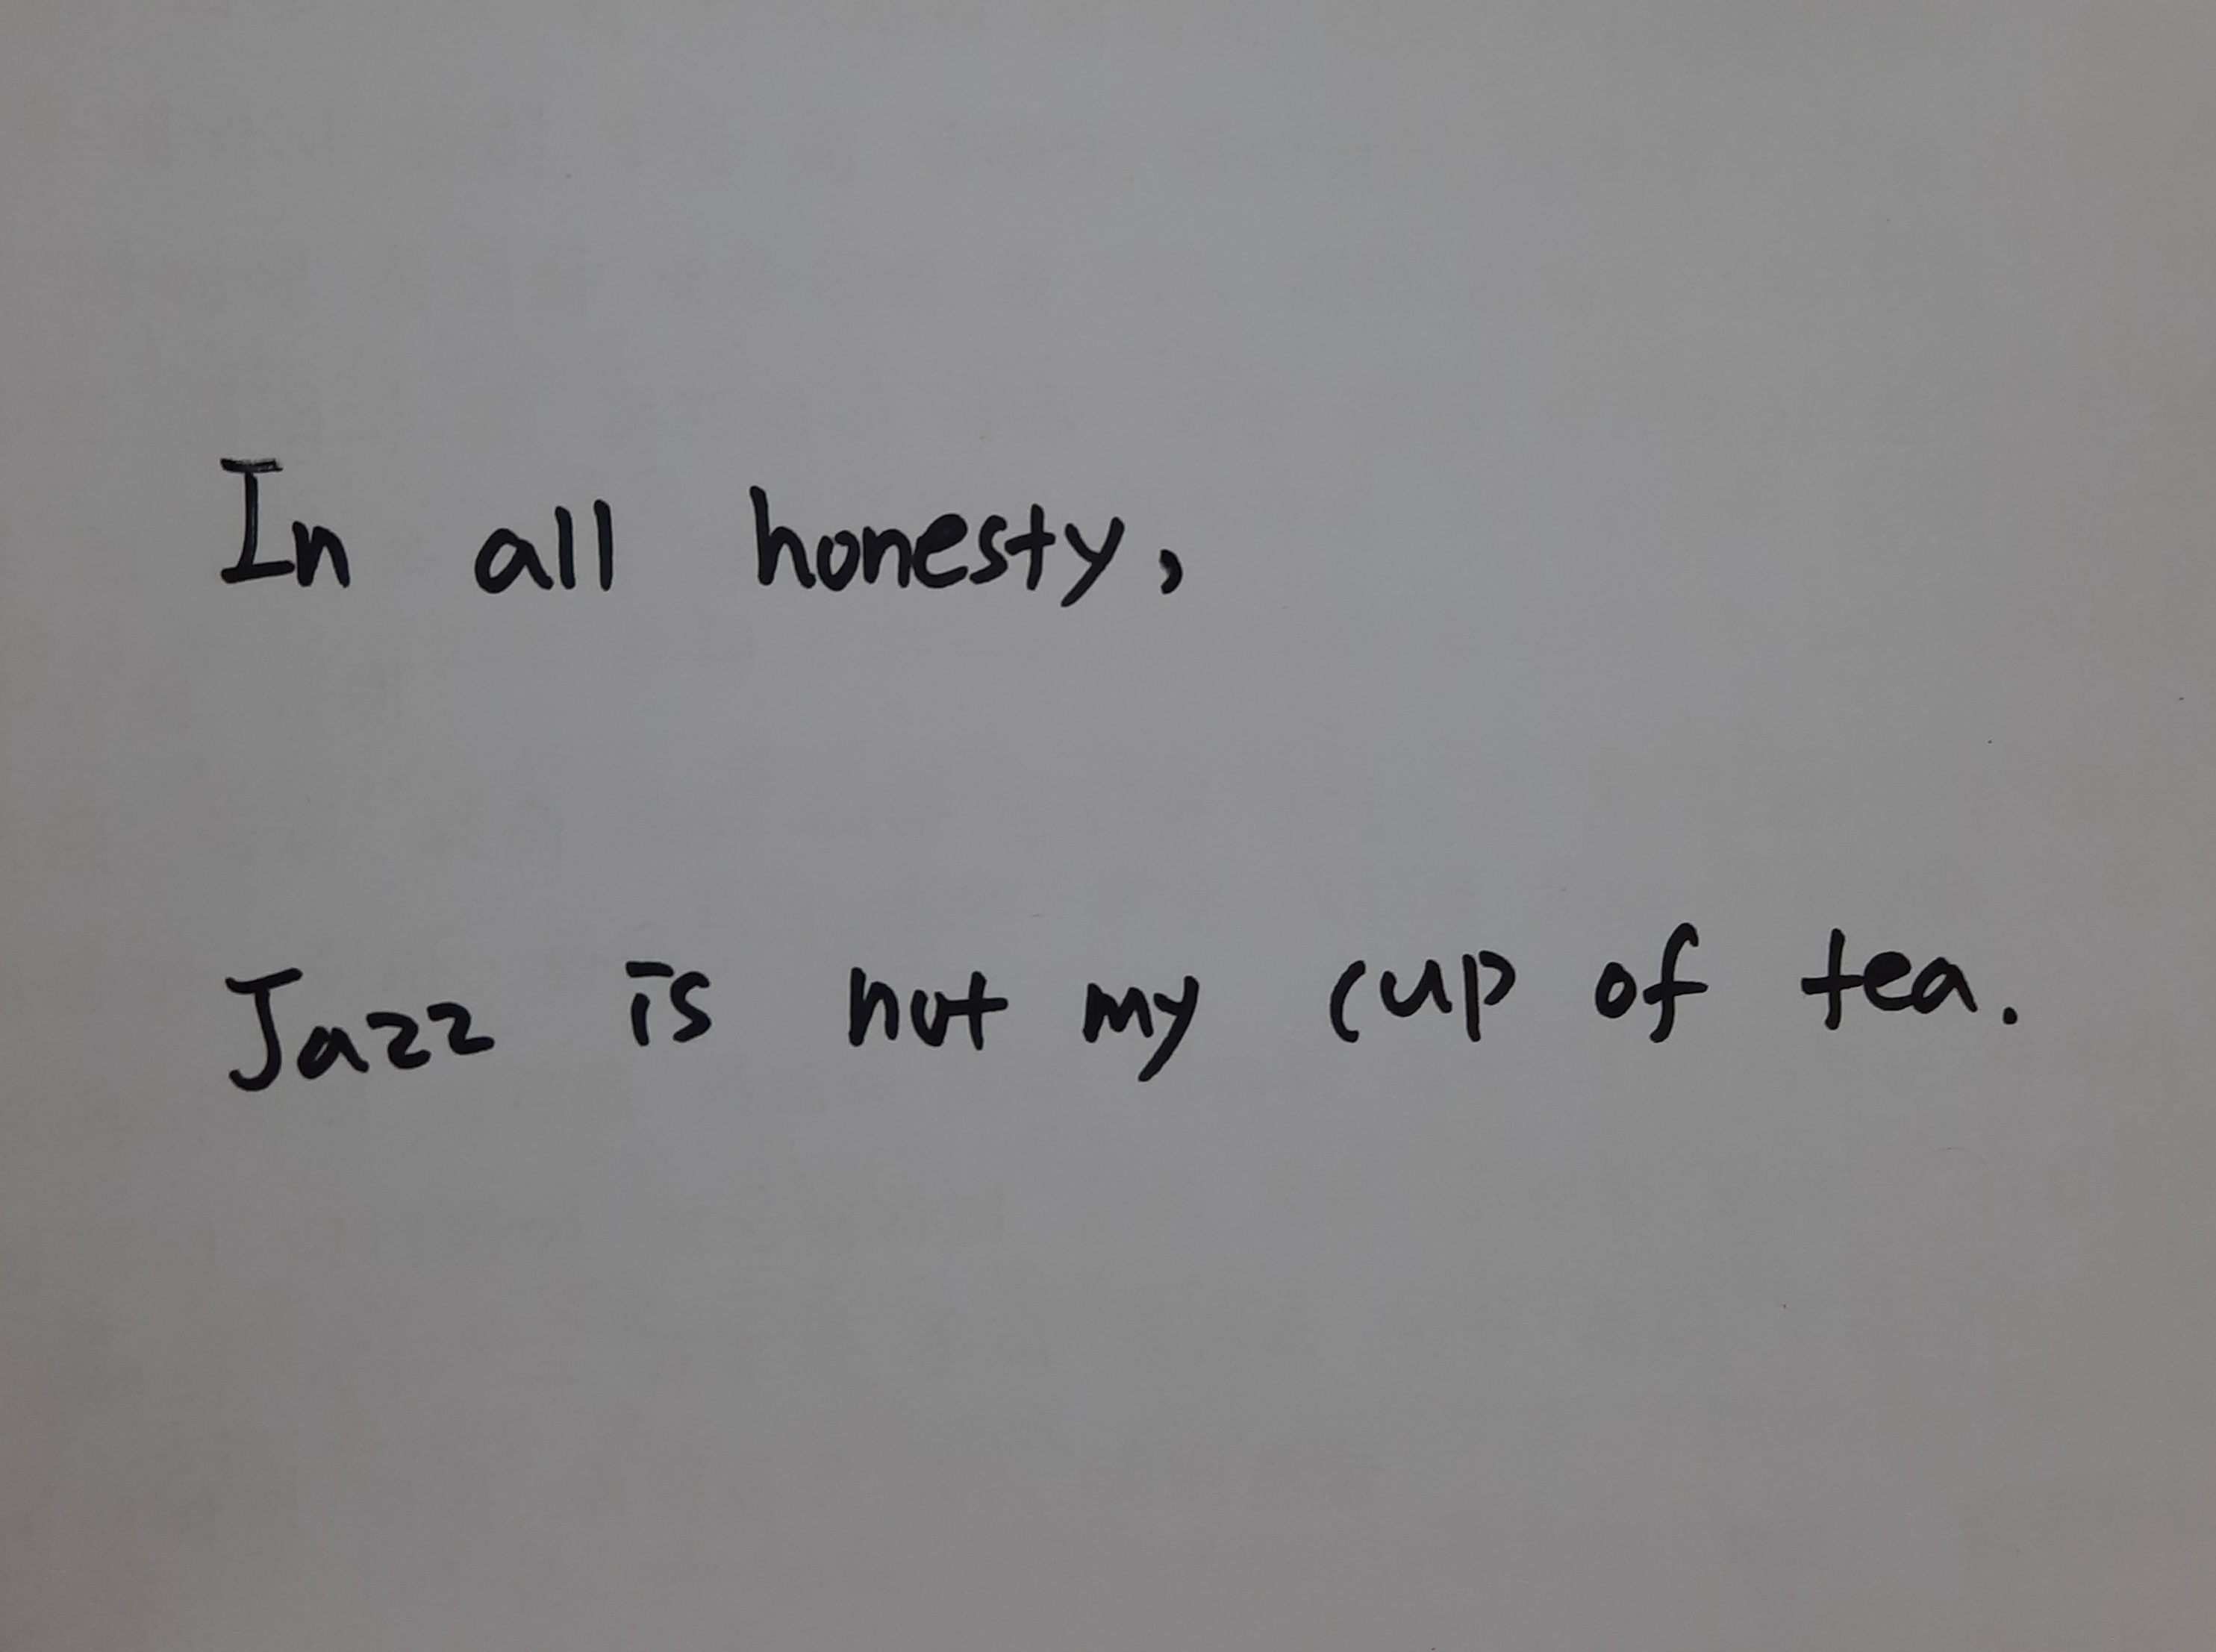 In all honesty,
Jazz is not my cup of tea.